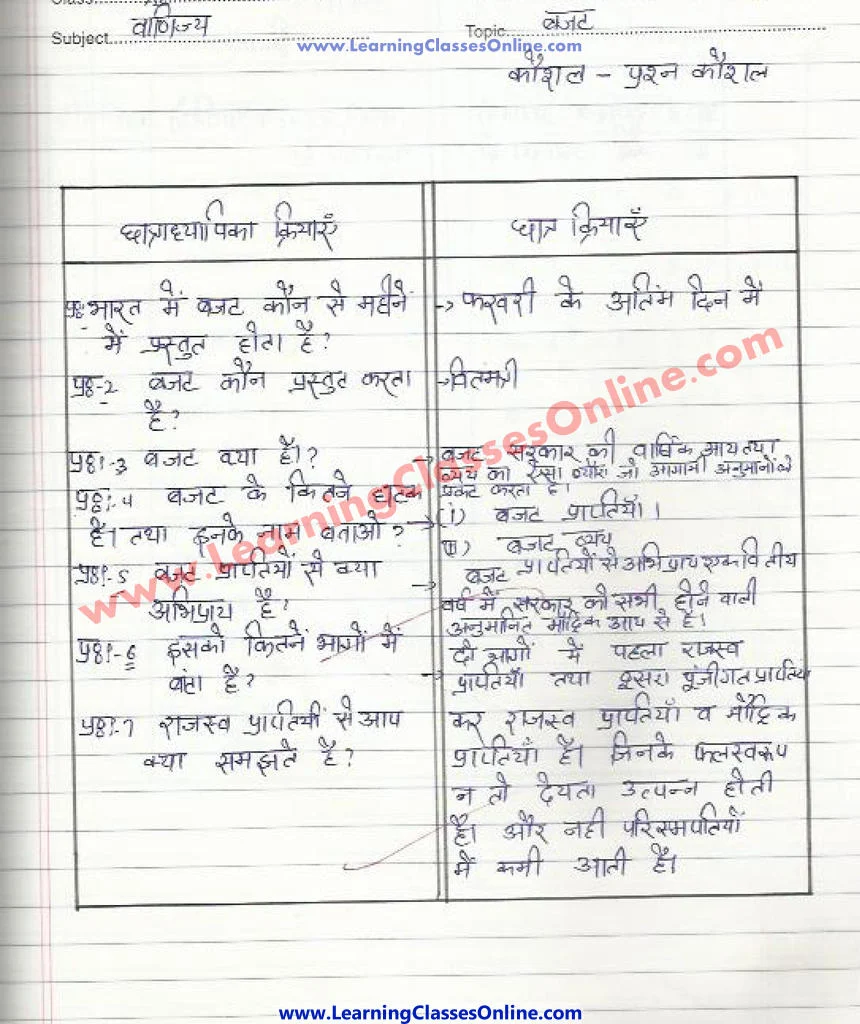 Class
Subject वाणिज्य
Topic बजट
www.LearningClassesOnline.com
कौशल - प्रश्न कौशल
छात्राध्यापिका क्रियाएँ
छात्र क्रियाएँ
प्रः भारत में बजट कौन से महीनें
में प्रस्तुत होता है?
→ फरवरी के अतिंम दिन में
प्रश्न-2 बजट कौन प्रस्तुत करता
है?
→ वितमंत्री
प्रश्न-3 बजट क्या है।?
→ बजट सरकार की वार्षिक आय तथा
व्यय का ऐसा ब्यौरा जो आगामी अनुमानो को
प्रकट करता है।
प्रश्न-4 बजट के कितने घटक
है। तथा इनके नाम बताओ?
→ (i) बजट प्राप्तियाँ।
(ii) बजट व्यय
प्रश्न-5 बजट प्राप्तियों से क्या
अभिप्राय है?
→ बजट प्राप्तियों से अभिप्राय एक वितीय
वर्ष में सरकार को सभी होने वाली
अनुमानित मौद्रिक आय से है।
प्रश्न-6 इसको कितनें भागों में
बांटा है?
दो भागों में पहला राजस्व
→ प्राप्तियाँ तथा दूसरा पूंजीगत प्राप्तियाँ
प्रश्न-7 राजस्व प्राप्तियों से आप
क्या समझते है?
कर राजस्व प्राप्तियाँ व मौद्रिक
प्राप्तियाँ है। जिनके फलस्वरूप
न तो देयता उत्पन्न होती
है। और नही परिसमपतियों
में कमी आती है।
www.LearningClassesOnline.com
www.LearningClassesOnline.com